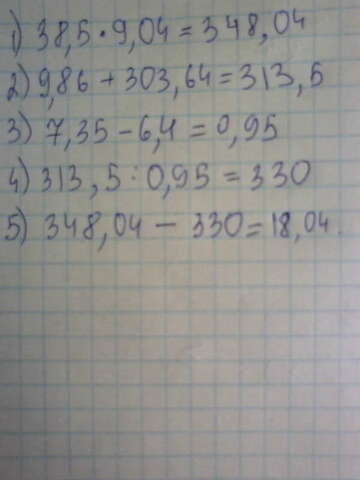 1) 38,5 · 9,04 = 348,04
2) 9,86 + 303,64 = 313,5
3) 7,35 - 6,4 = 0,95
4) 313,5 : 0,95 = 330
5) 348,04 - 330 = 18,04.